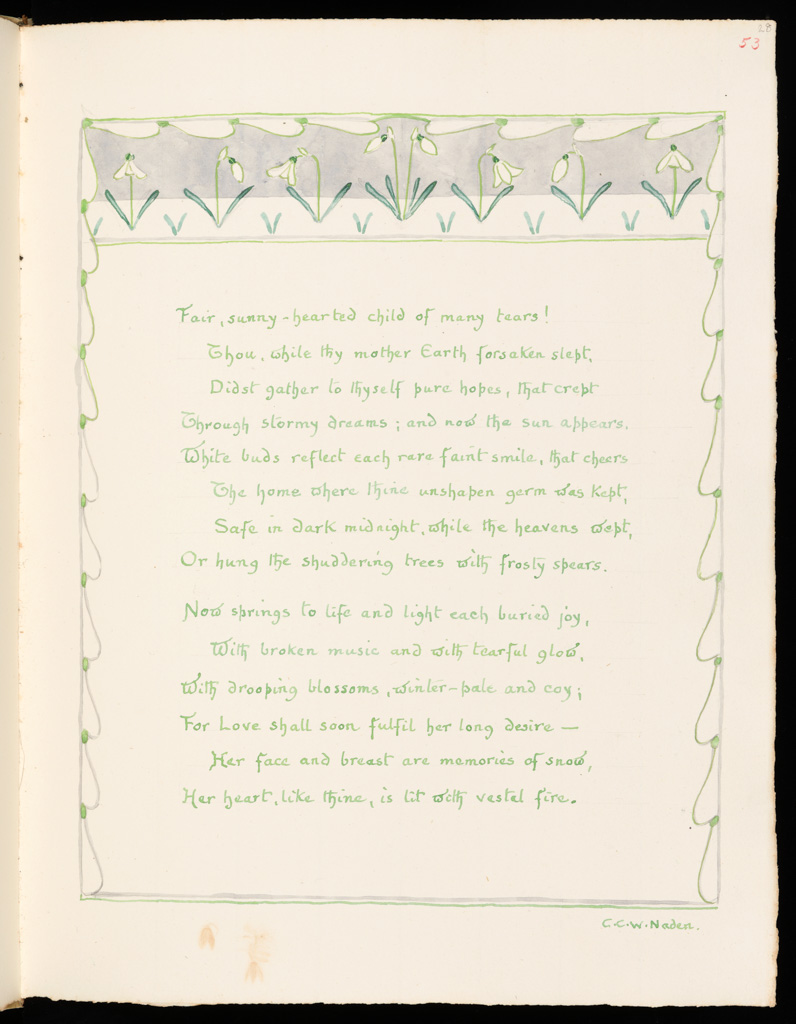 28
53
Fair, sunny-hearted child of many tears!
Thou, while thy mother Earth forsaken slept,
Didst gather to thyself pure hopes, that crept
Through stormy dreams; and now the sun appears,
White buds reflect each rare faint smile, that cheers
The home where thine unshapen germ was kept,
Safe in dark midnight, while the heavens wept,
Or hung the shuddering trees with frosty spears.
Now springs to life and light each buried joy,
With broken music and with tearful glow,
With drooping blossoms, winter-pale and coy;
For Love shall soon fulfil her long desire —
Her face and breast are memories of snow,
Her heart, like thine, is lit with vestal fire.
C.C.W. Naden.